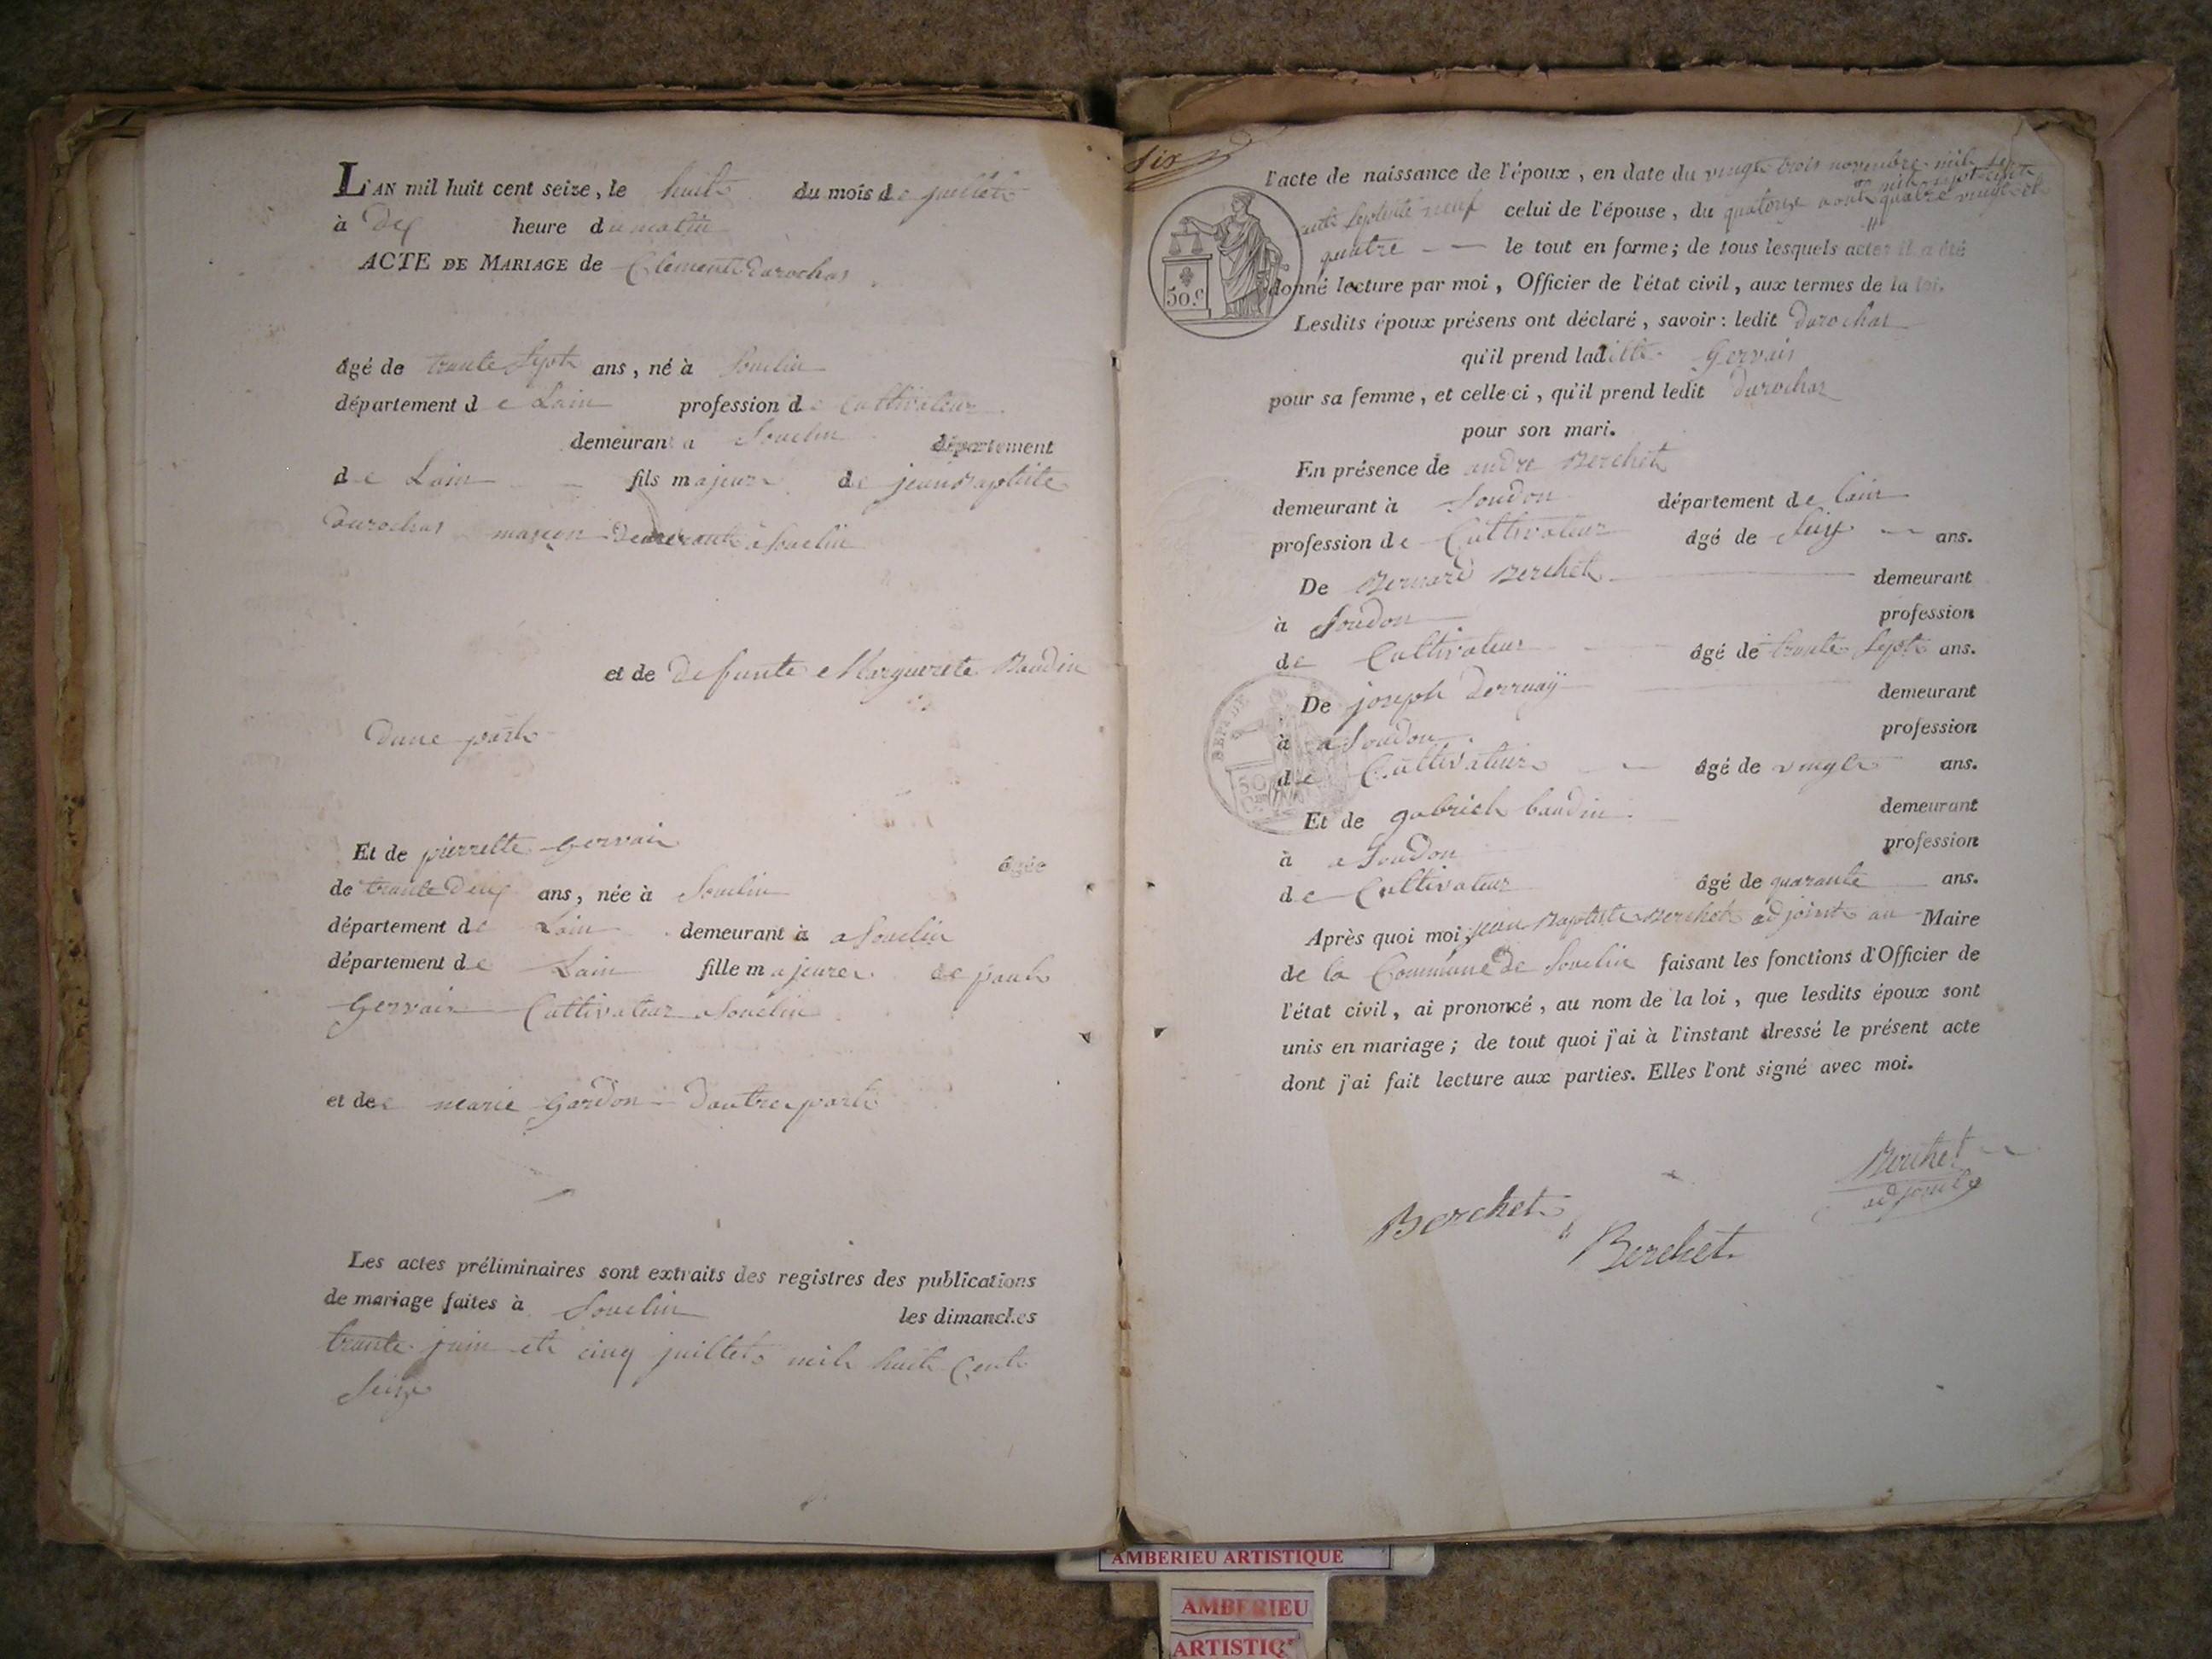 L'AN mil huit cent seize, le huit du mois de juillet
à dix heure du matin
ACTE DE MARIAGE de Clement Durochat
âgé de trante sept ans, né à Souclin
département de Lain profession de Cultivateur
demeurant a Souclin département
de Lain fils majeur de jean Baptiste
Durochat maçon demeurant à Souclin
et de defunte Marguerete Baudin
dune part
Et de pierrette Gervais âgée
de trante deux ans, née à Souclin
département de Lain demeurant à a Souclin
département de Lain fille majeure de paul
Gervais Cultivateur a Souclin
et de marie Gardon dautre part
Les actes préliminaires sont extraits des registres des publications
de mariage faites à Souclin les dimanches
trante juin et cinq juillet mil huit Cent
Seize
Six
l'acte de naissance de l'époux, en date du vingt trois novembre mil sept
cent septente neuf celui de l'épouse, du quatorze aout mil sept cent quatre vingt et
quatre le tout en forme; de tous lesquels actes il a été
donné lecture par moi, Officier de l'état civil, aux termes de la loi.
Lesdits époux présens ont déclaré, savoir: ledit Durochat
qu'il prend laditte Gervais
pour sa femme, et celle-ci, qu'il prend ledit Durochat
pour son mari.
En présence de andre Berchet
demeurant à Soudon département de Lain
profession de Cultivateur âgé de ans.
De Bernard Berchet demeurant
à Soudon profession
de Cultivateur âgé de trante sept ans.
De joseph demeurant
à a Soudon profession
de Cultivateur âgé de vingt ans.
Et de gabriel baudin demeurant
à a Soudon profession
de Cultivateur âgé de quarante ans.
Après quoi moi jean Baptiste Berchet adjoint au Maire
de la Commune de Souclin faisant les fonctions d'Officier de
l'état civil, ai prononcé, au nom de la loi, que lesdits époux sont
unis en mariage; de tout quoi j'ai à l'instant dressé le présent acte
dont j'ai fait lecture aux parties. Elles l'ont signé avec moi.
Berchet
adjoint
Berchet
Berchet
50.c
AMBERIEU ARTISTIQUE
AMBERIEU
ARTISTIQ